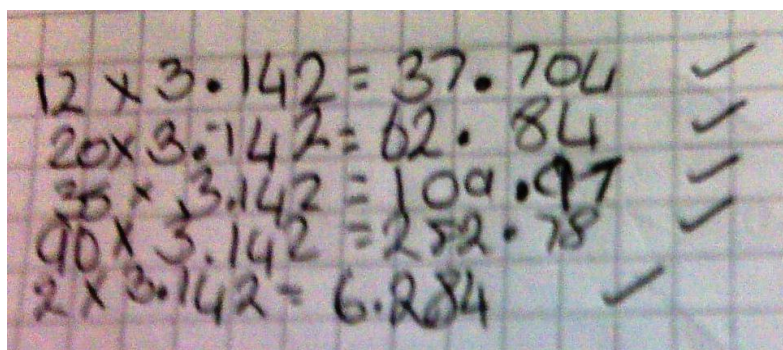 12 × 3.142 = 37.704 ✓
20 × 3.142 = 62.84 ✓
35 × 3.142 = 109.97 ✓
90 × 3.142 = 282.78 ✓
2 × 3.142 = 6.284 ✓